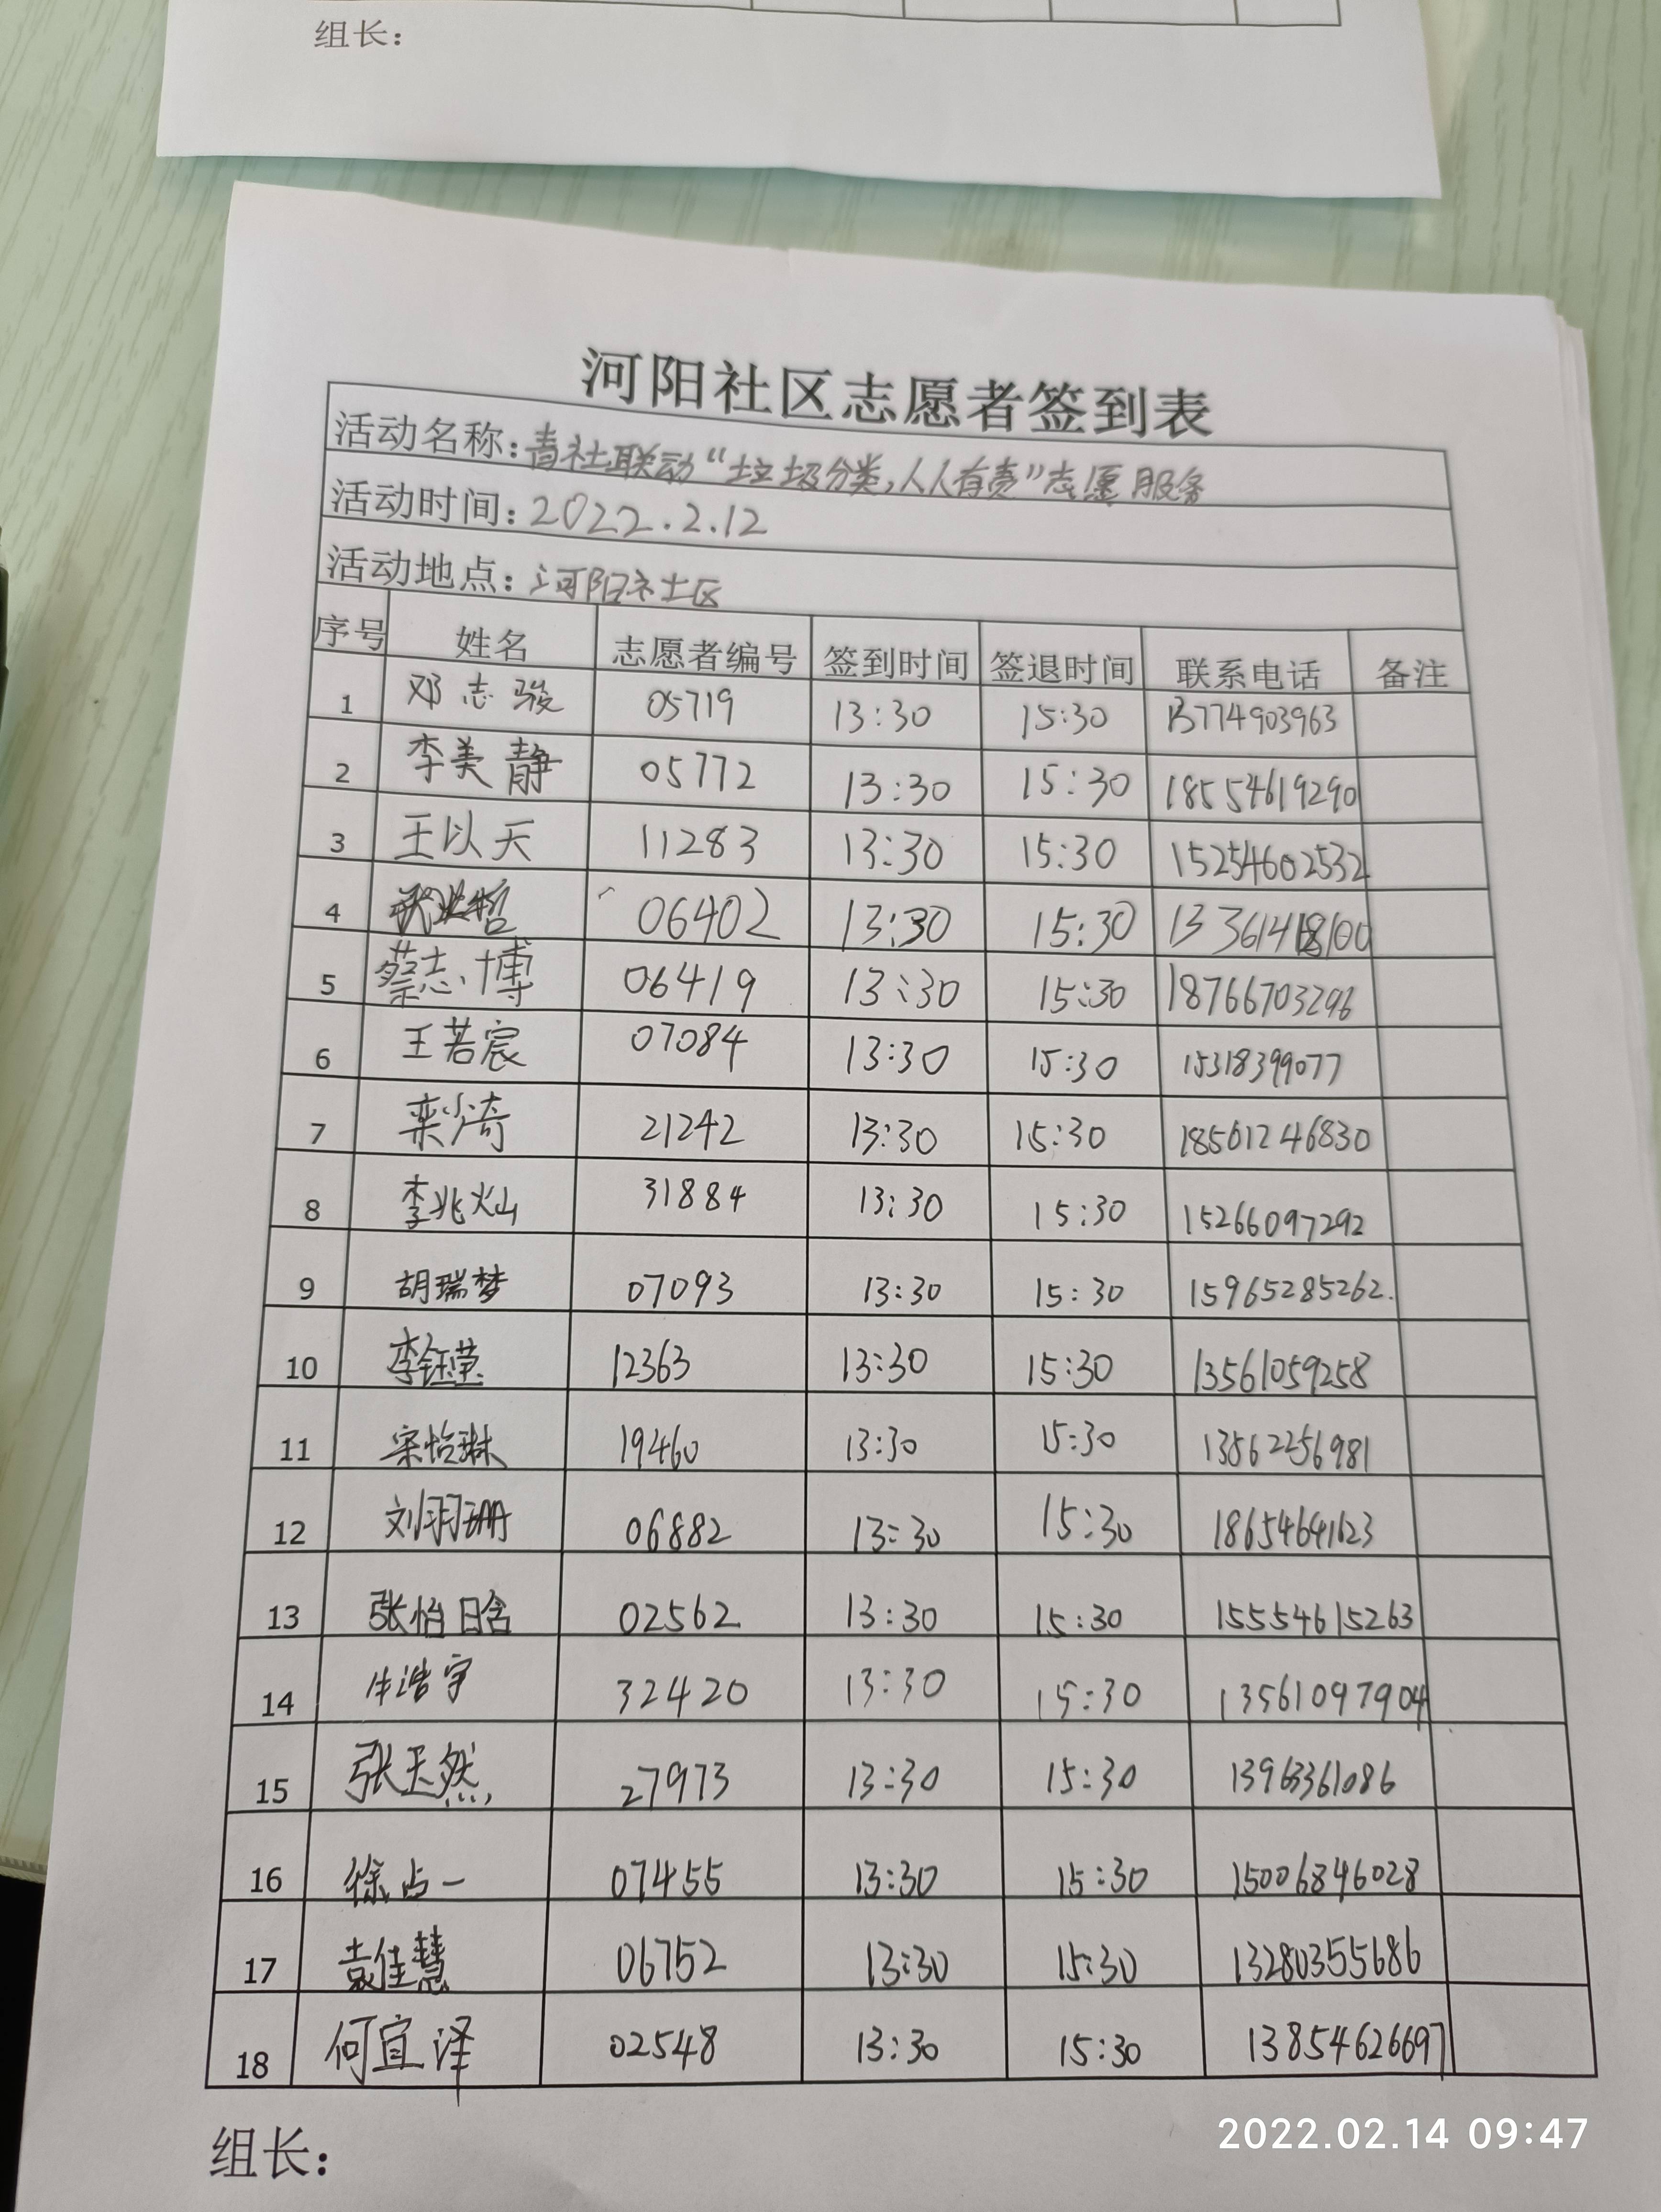 组长：
河阳社区志愿者签到表
活动名称：青社联动“垃圾分类，人人有责”志愿服务
活动时间：2022.2.12
活动地点：河阳社区
序号 姓名 志愿者编号 签到时间 签退时间 联系电话 备注
1 邓志骏 05719 13:30 15:30 13774903963
2 李美静 05772 13:30 15:30 18554619290
3 王以天 11283 13:30 15:30 15254602532
4 06402 13:30 15:30
5 蔡志博 06419 13:30 15:30 18766703296
6 王若宸 07084 13:30 15:30 15318399077
7 栾少奇 21242 13:30 15:30 18561246830
8 李兆灿 31884 13:30 15:30 15266097292
9 胡瑞梦 07093 13:30 15:30 15965285262.
10 李钰莹 12363 13:30 15:30 13561059258
11 宋怡琳 19460 13:30 15:30 13562256981
12 刘羽珊 06882 13:30 15:30 18654641623
13 张怡晗 02562 13:30 15:30 15554615263
14 牛浩宇 32420 13:30 15:30 13561097904
15 张天然 27973 13:30 15:30 13963361086
16 徐占一 07455 13:30 15:30 15006846028
17 袁佳慧 06752 13:30 15:30 13280355686
18 何宜译 02548 13:30 15:30 13854626697
组长：
2022.02.14 09:47